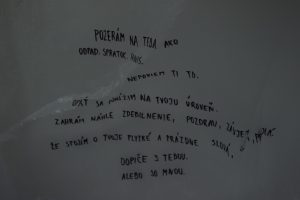 POZERÁM NA TEBA AKO
ODPAD, SPRATOK, HNIS.
NEPOVIEM TI TO.
OPÄŤ SA ZNÍŽIM NA TVOJU ÚROVEŇ.
ZAHRÁM NÁHLE ZDEBILNENIE, POZDRAV,
ŽE STOJÍM O TVOJE PLYTKÉ A PRÁZDNE SLOVÁ,
DOPIČE S TEBOU.
ALEBO SO MNOU.